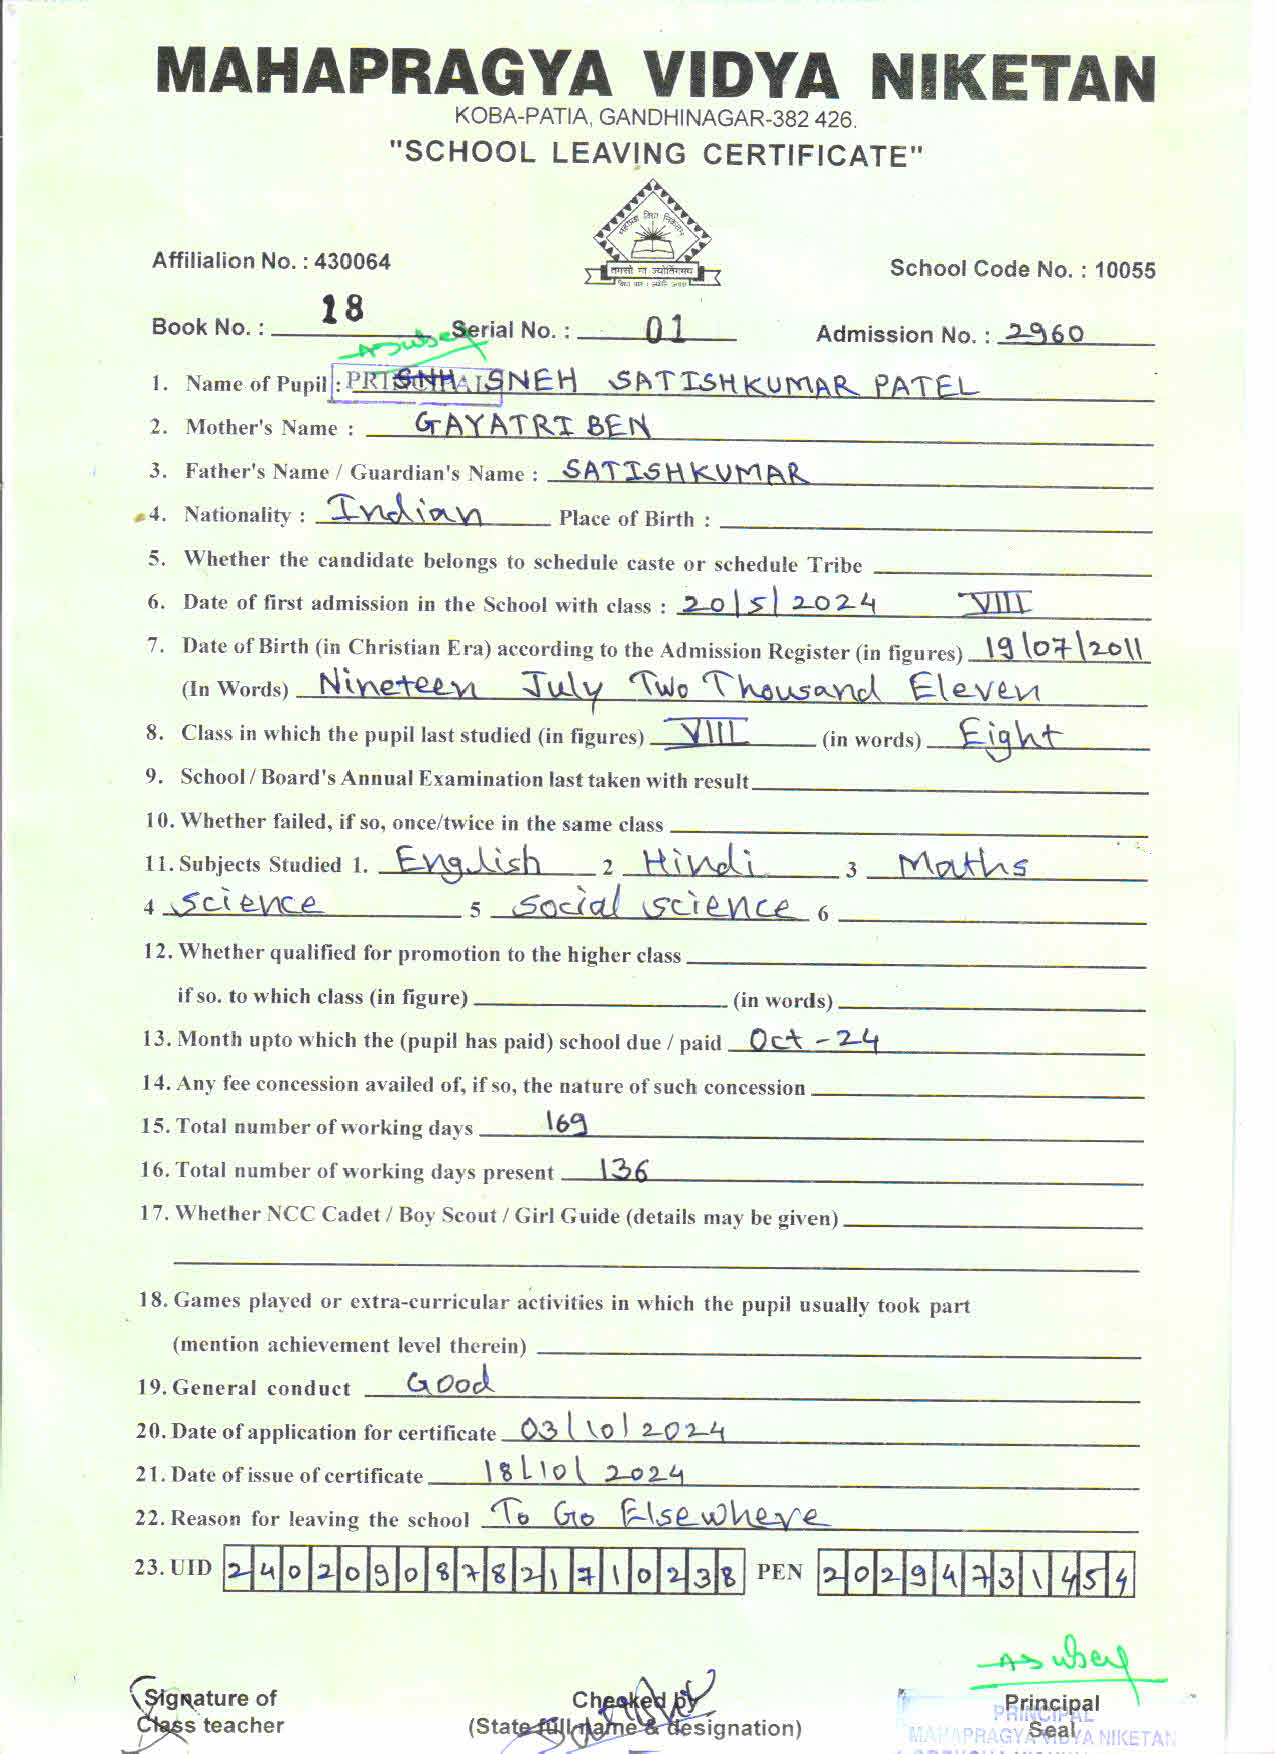 MAHAPRAGYA VIDYA NIKETAN
KOBA-PATIA, GANDHINAGAR-382 426.
"SCHOOL LEAVING CERTIFICATE"
महाप्रज्ञ विद्या निकेतन
तमसो मा ज्योतिर्गमय
Affilialion No. : 430064
School Code No. : 10055
Book No. : 18 Serial No. : 01 Admission No. : 2960
1. Name of Pupil : SNEH SATISHKUMAR PATEL
2. Mother's Name : GAYATRI BEN
3. Father's Name / Guardian's Name : SATISHKUMAR
4. Nationality : Indian Place of Birth :
5. Whether the candidate belongs to schedule caste or schedule Tribe
6. Date of first admission in the School with class : 20/5/2024 VIII
7. Date of Birth (in Christian Era) according to the Admission Register (in figures) 19/07/2011
(In Words) Nineteen July Two Thousand Eleven
8. Class in which the pupil last studied (in figures) VIII (in words) Eight
9. School / Board's Annual Examination last taken with result
10. Whether failed, if so, once/twice in the same class
11. Subjects Studied 1. English 2 Hindi 3 Maths
4 Science 5 Social Science 6
12. Whether qualified for promotion to the higher class
if so. to which class (in figure) (in words)
13. Month upto which the (pupil has paid) school due / paid Oct - 24
14. Any fee concession availed of, if so, the nature of such concession
15. Total number of working days 169
16. Total number of working days present 136
17. Whether NCC Cadet / Boy Scout / Girl Guide (details may be given)
18. Games played or extra-curricular activities in which the pupil usually took part
(mention achievement level therein)
19. General conduct Good
20. Date of application for certificate 03/10/2024
21. Date of issue of certificate 18/10/2024
22. Reason for leaving the school To Go Elsewhere
23. UID 240209087821710238 PEN 20294731454
Signature of
Class teacher
Checked by
(State full name & designation)
Principal
Seal
PRINCIPAL
MAHAPRAGYA VIDYA NIKETAN